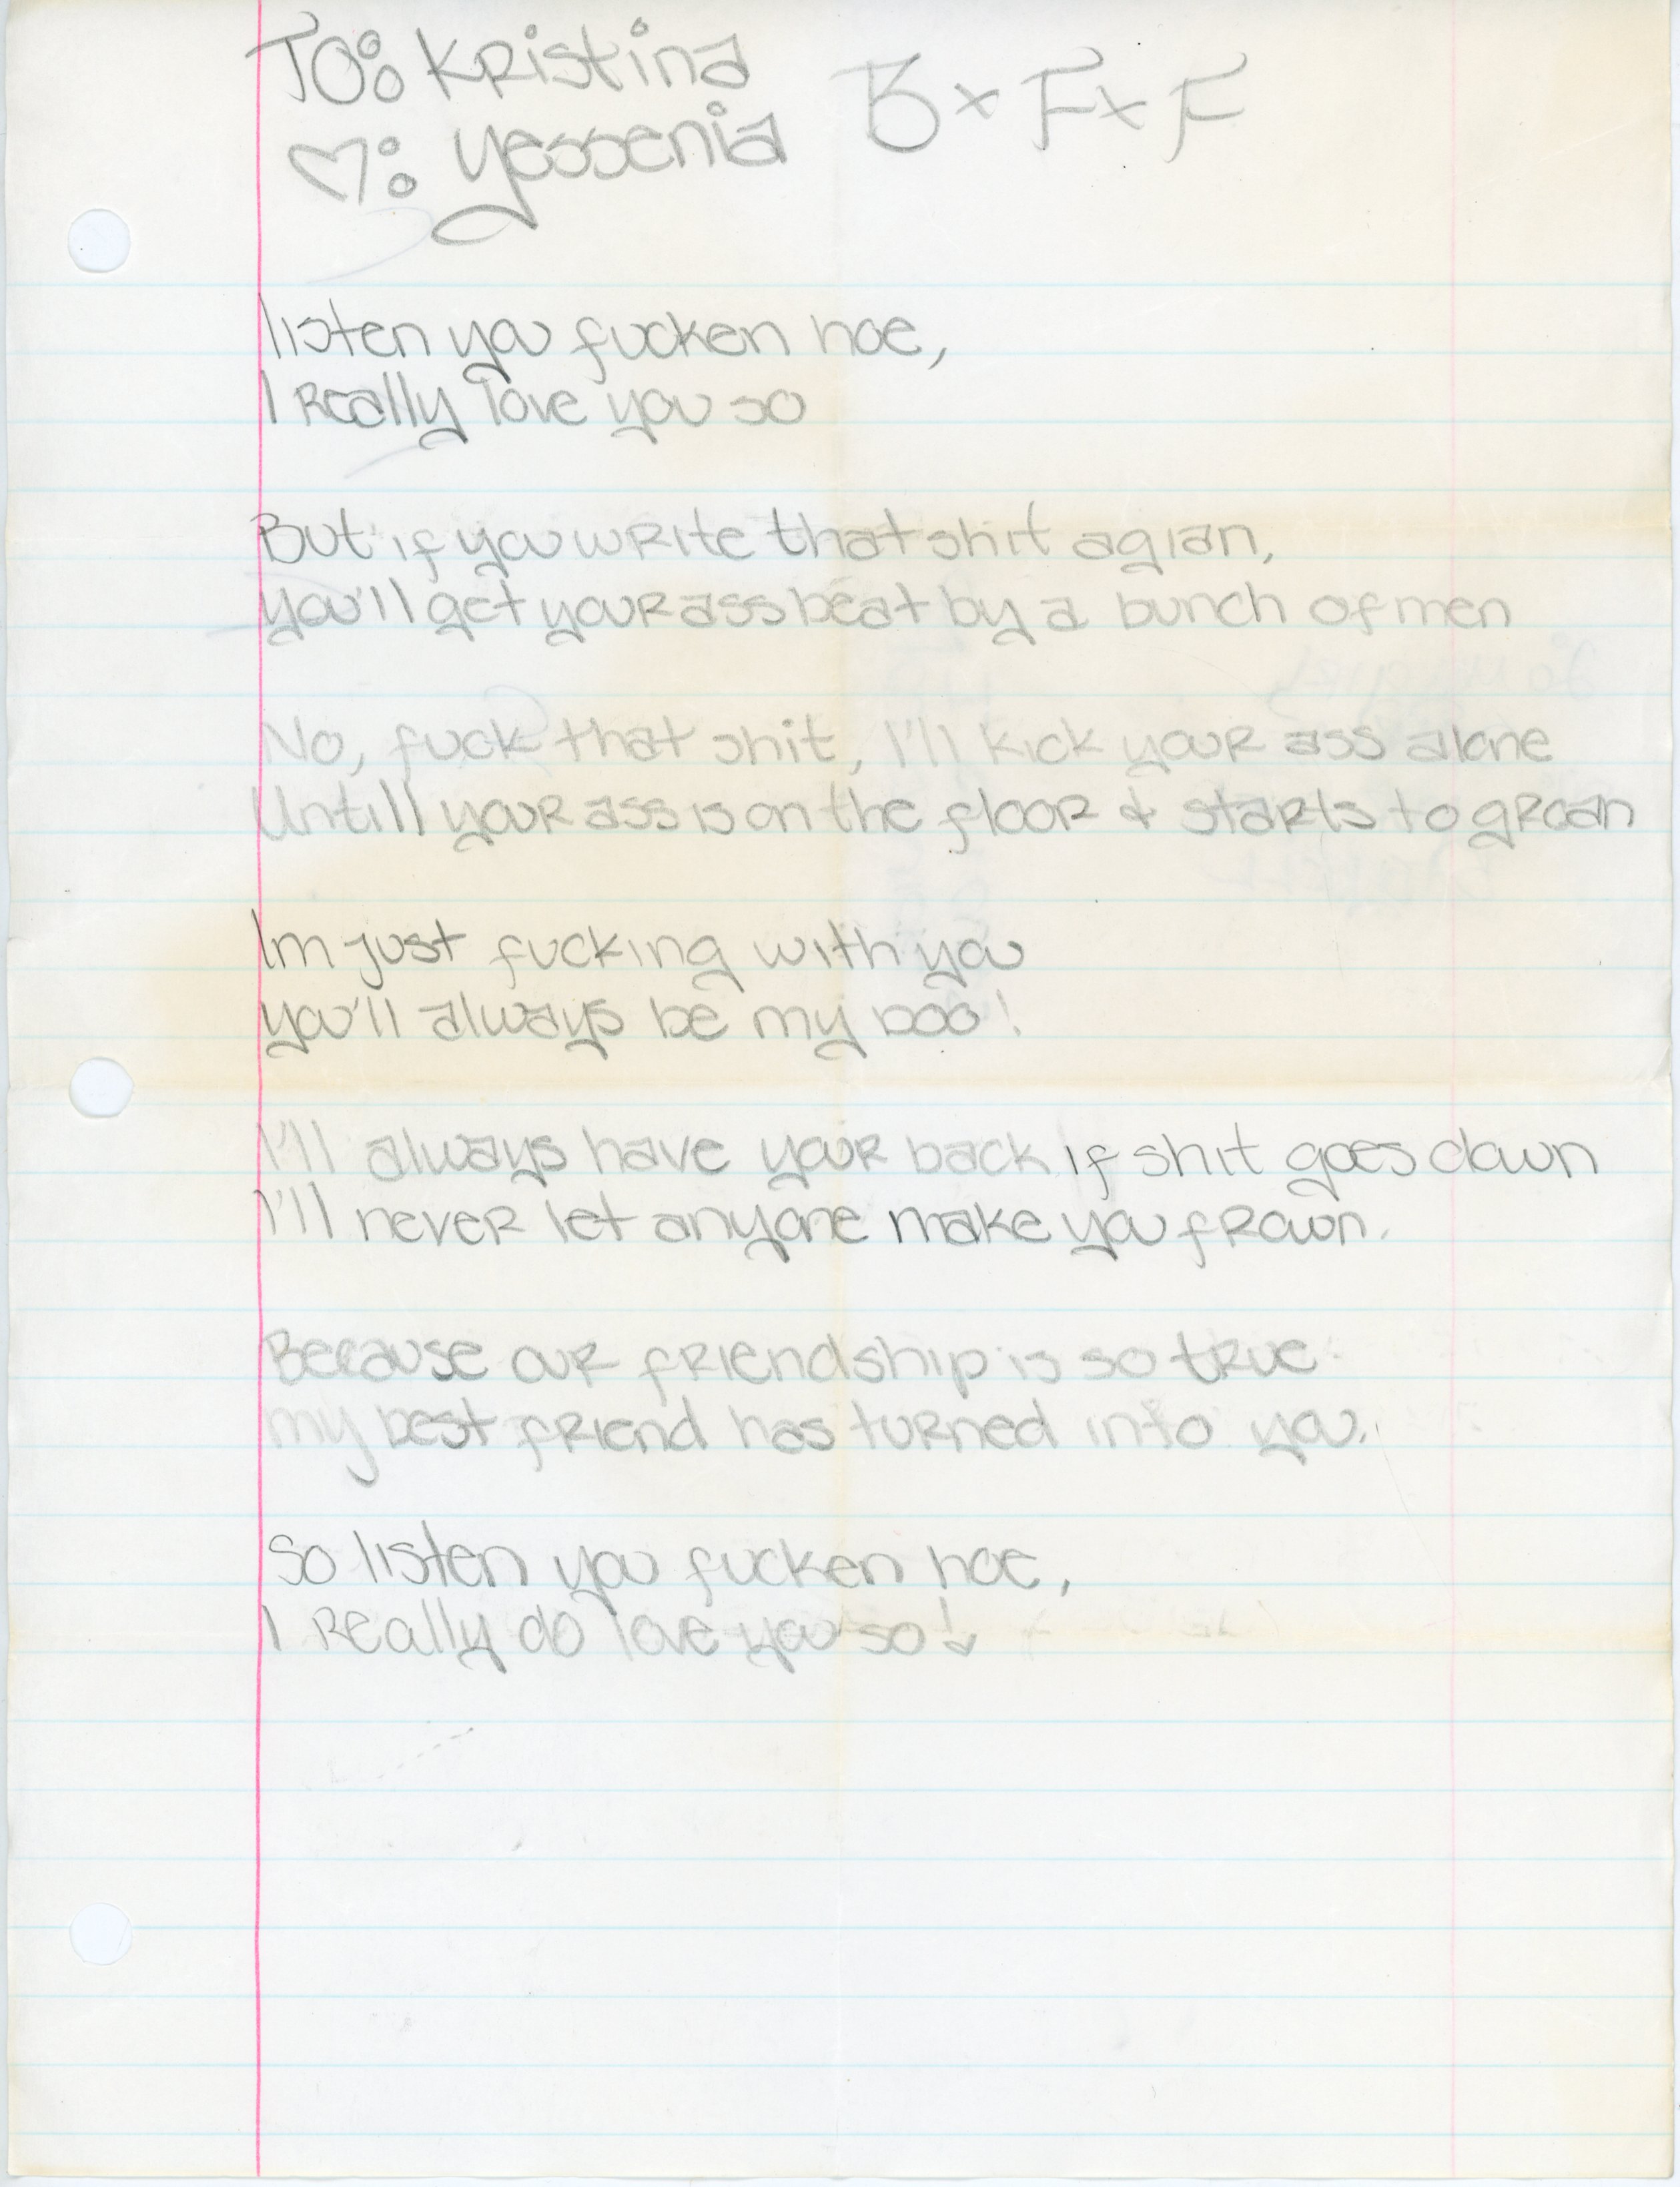 TO: Kristina B x F x F
♡: yessenia
listen you fucken hoe,
I Really love you so
But if you write that shit agian,
you'll get your ass beat by a bunch of men
No, fuck that shit, I'll kick your ass alone
Untill your ass is on the floor & starts to groan
Im just fucking with you
you'll always be my boo!
I'll always have your back if shit goes down
I'll never let anyone make you frown.
Because our friendship is so true
my best friend has turned into you.
So listen you fucken hoe,
I Really do love you so!